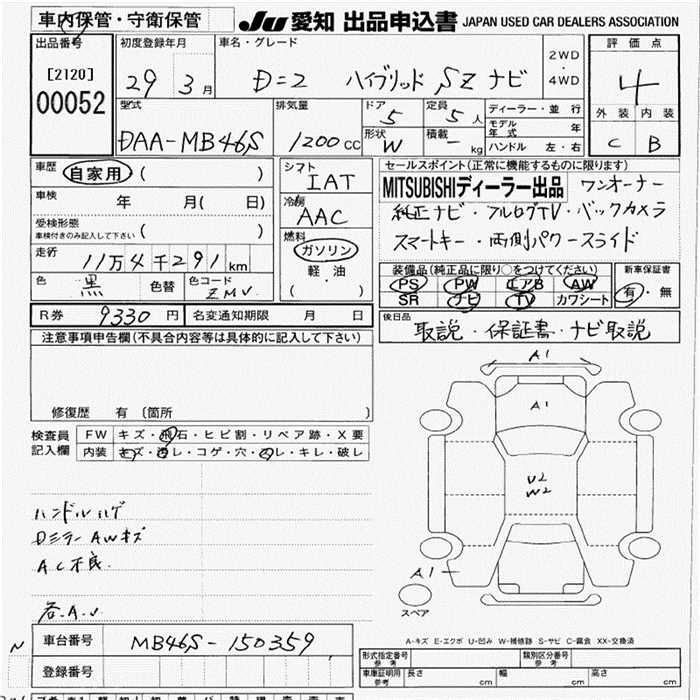 車内保管・守衛保管
JU 愛知 出品申込書 JAPAN USED CAR DEALERS ASSOCIATION
出品番号
[2120]
00052
初度登録年月
29 3月
車名・グレード
D=2 ハイブリッド SZ ナビ
2WD
・
4WD
評価点
4
外装 内装
C B
型式
DAA-MB46S
排気量
1200cc
ドア
5
定員
5人
形状
W
積載
- kg
ディーラー・並行
モデル年式 年
ハンドル 左・右
車歴
自家用 ( )
車検 年 月( 日)
受検形態
車検付きのみ記入して下さい ( )
走行
11万4千291km
色 黒 色替 色コード ZMV
シフト
IAT
冷房
AAC
燃料
ガソリン
軽・油
( )
セールスポイント(正常に機能するものに限ります)
MITSUBISHIディーラー出品 ワンオーナー
純正ナビ・アルログTV・バックカメラ
スマートキー・両側パワースライド
装備品(純正品に限り○をつけてください)
PS PW エアB AW
SR ナビ TV カワシート
新車保証書
有・無
R券 9330円 名変通知期限 月 日
後日品
取説・保証書・ナビ取説
注意事項申告欄(不具合内容等は具体的に記入して下さい)
修復歴 有 〔箇所 〕
検査員
記入欄
FW キズ・飛石・ヒビ割・リペア跡・X要
内装 キズ・汚レ・コゲ・穴・スレ・キレ・破レ
ハンドルハゲ
Dミラー AWキズ
AC不良
各A.U
A1
A1
U2
W2
A1
スペア
A-キズ E-エクボ U-凹み W-補修跡 S-サビ C-腐食 XX-交換済
N
車台番号 MB46S-150359
登録番号
形式指定番号
参考
類別区分番号
参考
車庫証明用
参考
長さ cm 幅 cm 高さ cm